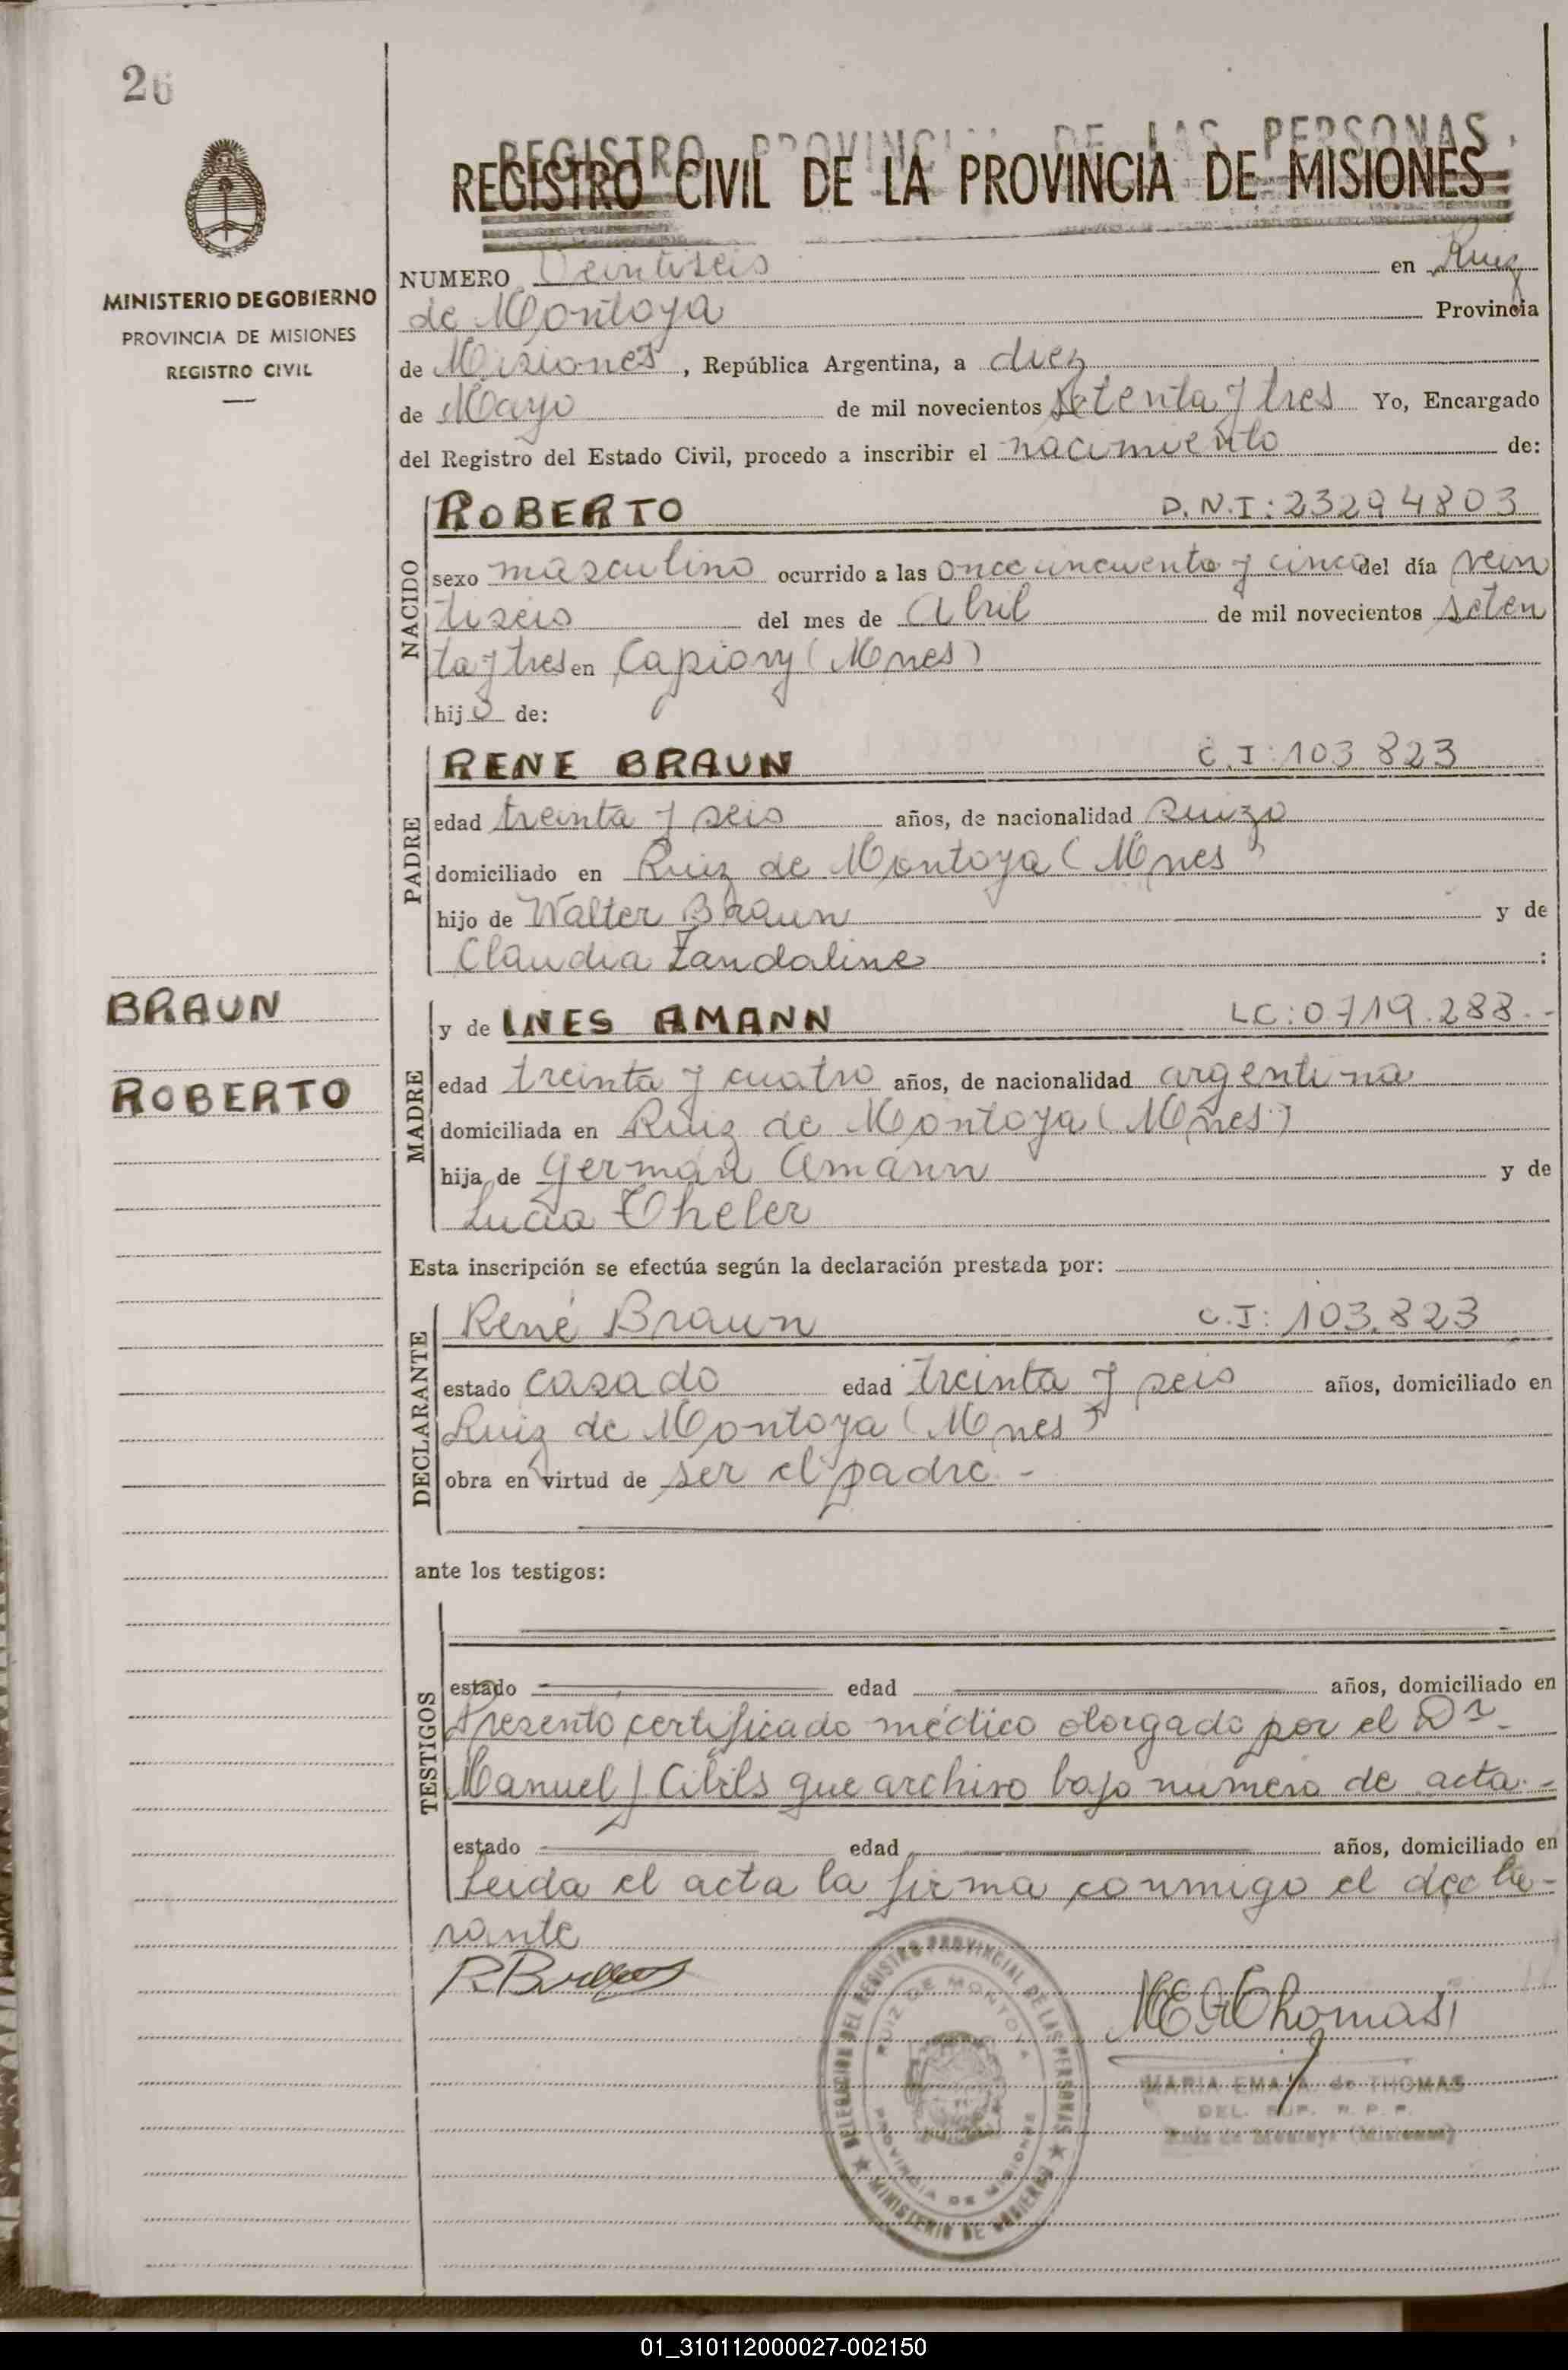 26
MINISTERIO DE GOBIERNO
PROVINCIA DE MISIONES
REGISTRO CIVIL
REGISTRO PROVINCIAL DE LAS PERSONAS
REGISTRO CIVIL DE LA PROVINCIA DE MISIONES
NUMERO Veintiseis en Ruiz
de Montoya Provincia
de Misiones, República Argentina, a diez
de Mayo de mil novecientos setenta y tres Yo, Encargado
del Registro del Estado Civil, procedo a inscribir el nacimiento de:
NACIDO
ROBERTO D.N.I: 23294803
sexo masculino ocurrido a las once cincuenta y cinco del día vein
tiseis del mes de Abril de mil novecientos seten
ta y tres en Capiovy (Mnes)
hijo de:
PADRE
RENE BRAUN C.I: 103.823
edad treinta y seis años, de nacionalidad Suizo
domiciliado en Ruiz de Montoya (Mnes)
hijo de Walter Braun y de
Claudia Zandaline :
BRAUN
ROBERTO
MADRE
y de INES AMANN LC: 0.719.288.-
edad treinta y cuatro años, de nacionalidad argentina
domiciliada en Ruiz de Montoya (Mnes)
hija de Germán Amánn y de
Lucia Theler
Esta inscripción se efectúa según la declaración prestada por:
DECLARANTE
René Braun C.I: 103.823
estado casado edad treinta y seis años, domiciliado en
Ruiz de Montoya (Mnes)
obra en virtud de ser el padre -
ante los testigos:
TESTIGOS
estado edad años, domiciliado en
Presentó certificado médico otorgado por el Dr.
Manuel J Cibils que archivo bajo numero de acta.-
estado edad años, domiciliado en
Leida el acta la firma conmigo el decla-
rante
R Braun
M E A Thomas
DELEGACION DEL REGISTRO PROVINCIAL DE LAS PERSONAS
RUIZ DE MONTOYA
PROVINCIA DE MISIONES
★ MINISTERIO DE GOBIERNO ★
MARIA EMA A. de THOMAS
DEL. SUP. R. P. P.
Ruiz de Montoya (Misiones)
01_310112000027-002150